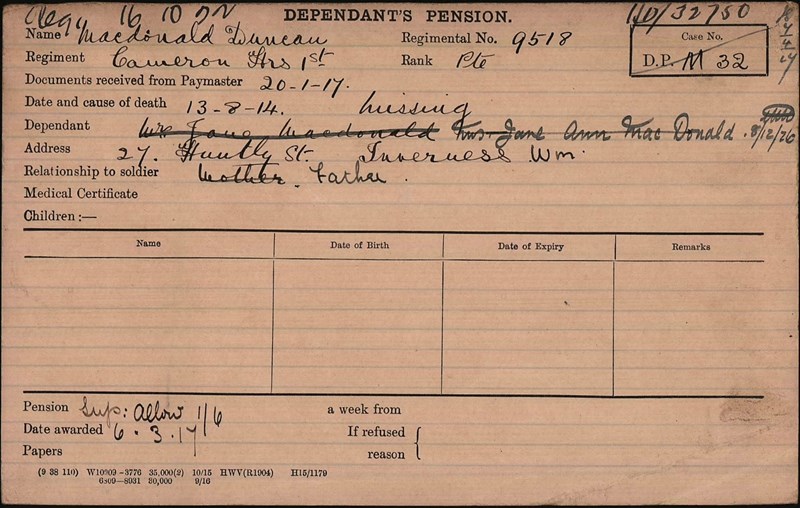 16 10 DEPENDANT'S PENSION. 110/32750
Name Macdonald Duncan Regimental No. 9518 Case No.
Regiment Cameron Hrs 1st Rank Pte D.P. M 32
Documents received from Paymaster 20-1-17.
Date and cause of death 13-8-14. missing
Dependant Mrs Jane Macdonald Mrs Jane Ann Mac Donald. 8/12/26
Address 27. Huntly St. Inverness Wm.
Relationship to soldier Mother. Father.
Medical Certificate
Children :—
Name Date of Birth Date of Expiry Remarks
Pension Sup: Allow 1/6 a week from
Date awarded 6.3.17 If refused
Papers reason
(9 38 110) W10909—3776 35,000(2) 10/15 HWV(R1904) H15/1179
6809—8931 30,000 9/16